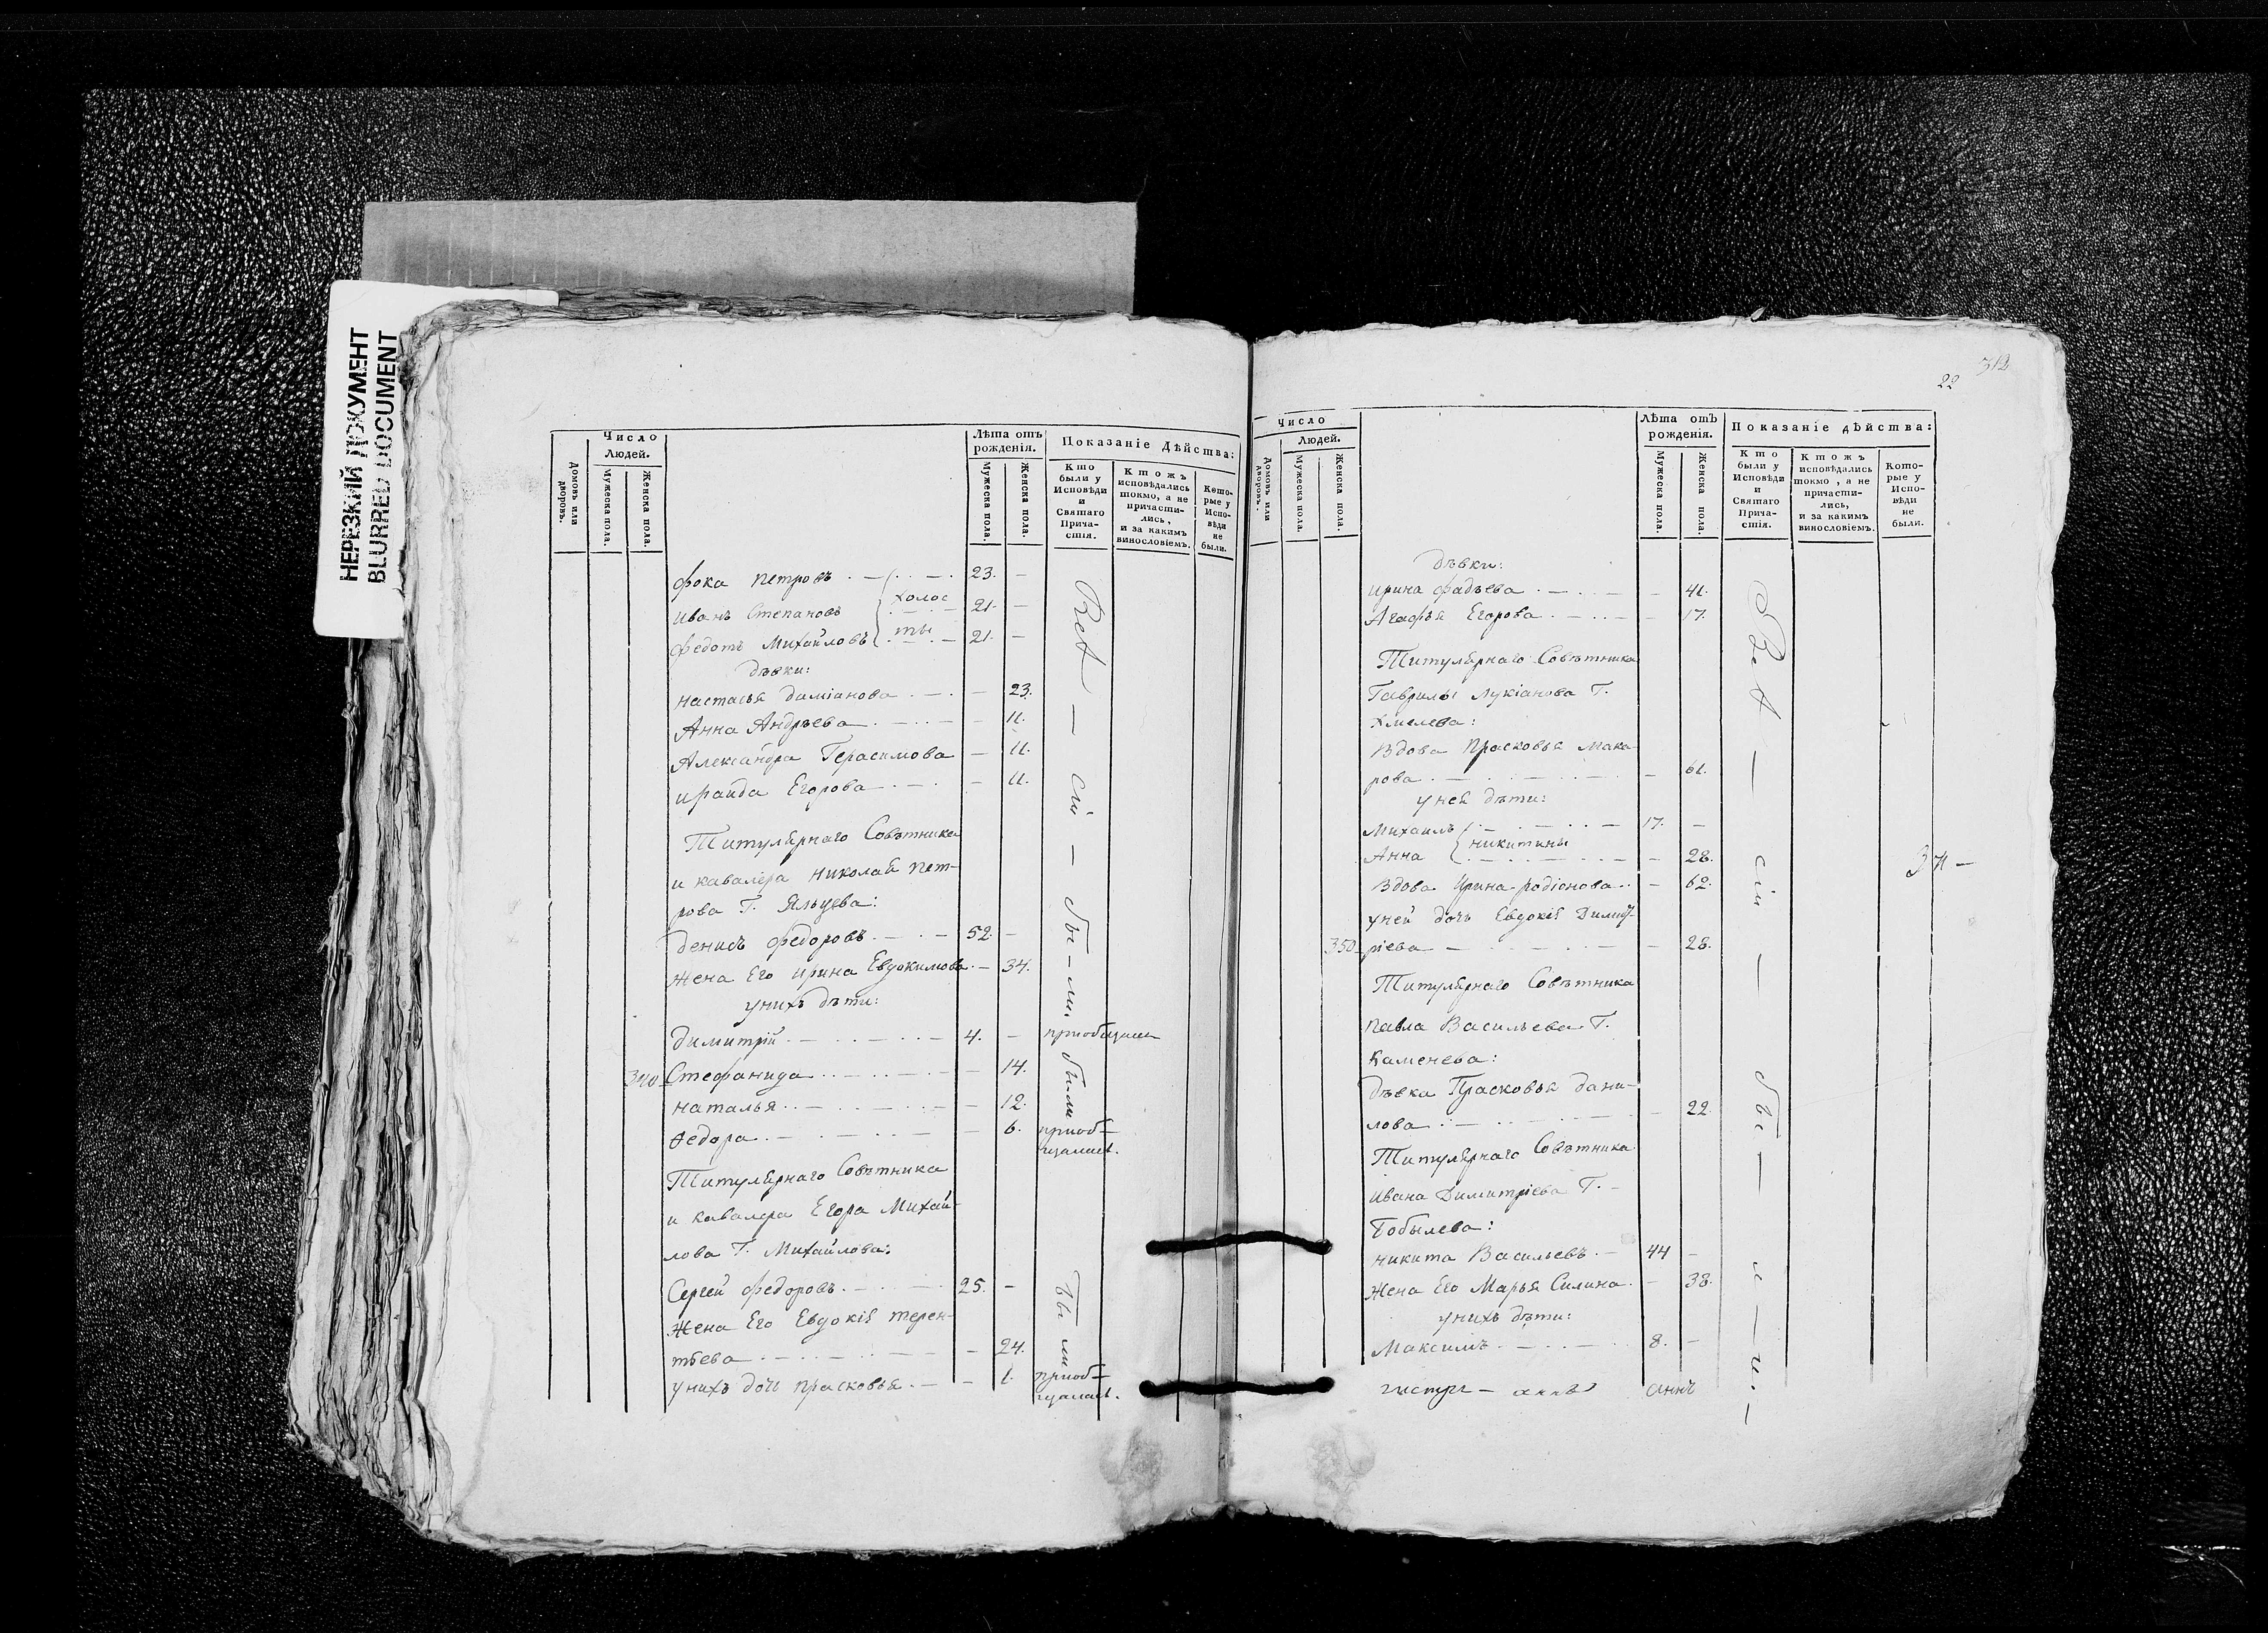 НЕРЕЗКИЙ ДОКУМЕНТ
BLURRED DOCUMENT
Число
Людей.
Домовъ или дворовъ.
Мужеска пола.
Женска пола.
Лѣта отъ рожденія.
Мужеска пола.
Женска пола.
Показаніе Дѣйства:
Кто были у Исповѣди и Святаго Причастія.
Ктожъ исповѣдались токмо, а не причастились, и за какимъ винословіемъ.
Которые у Исповѣди не были.
фока Петровъ 23. –
холос
иванъ Степановъ 21. –
федотъ Михайловъ ты 21. –
дѣвки:
настасья даміанова – 23.
Анна Андрѣева – 11.
Александра Герасимова – 11.
ираида Егорова – 11.
Титулярнаго Совѣтника
и кавалера николая пет-
рова Г. Яльцева:
денисъ федоровъ 52. –
жена Его ирина Евдокимова – 34.
унихъ дѣти:
димитрій 4. – приобщались
340 Стефанида – 14.
наталья – 12.
Ѳедора – 6. приоб-
щалась.
Титулярнаго Совѣтника
и кавалера Егора Михай-
лова Г. Михайлова:
Сергей федоровъ 25. –
Жена Его Евдокія терен-
тьева – 24.
унихъ дочь прасковья – 1. приоб-
щалась.
Всѣ – сіи – бы – ли.
были
были
312
22
Число
Людей.
Домовъ или дворовъ.
Мужеска пола.
Женска пола.
Лѣта отъ рожденія.
Мужеска пола.
Женска пола.
Показаніе дѣйства:
Кто были у Исповѣди и Святаго Причастія.
Ктожъ исповѣдались токмо, а не причастились, и за какимъ винословіемъ.
Которые у Исповѣди не были.
дѣвки:
ирина фадѣева – 41.
Агафья Егорова – 17.
Титулярнаго Совѣтника
Гаврилы Лукіанова Г.
Хмелева:
Вдова Прасковья мака-
рова – 61.
уней дѣти:
Михаилъ 17. –
никитины
Анна – 28.
Вдова Ирина родіонова – 62.
уней дочь Евдокія Димит-
350 ріева – 28.
Титулярнаго Совѣтника
павла Васильева Г.
Каменева:
дѣвка Прасковья дани-
лова – 22.
Титулярнаго Совѣтника
ивана Димитріева Г. –
Бобылева:
никита Васильевъ 44 –
Жена Его Марья Силина – 38.
унихъ дѣти:
Максимъ 8. –
Всѣ – сіи – бы – л – и. –